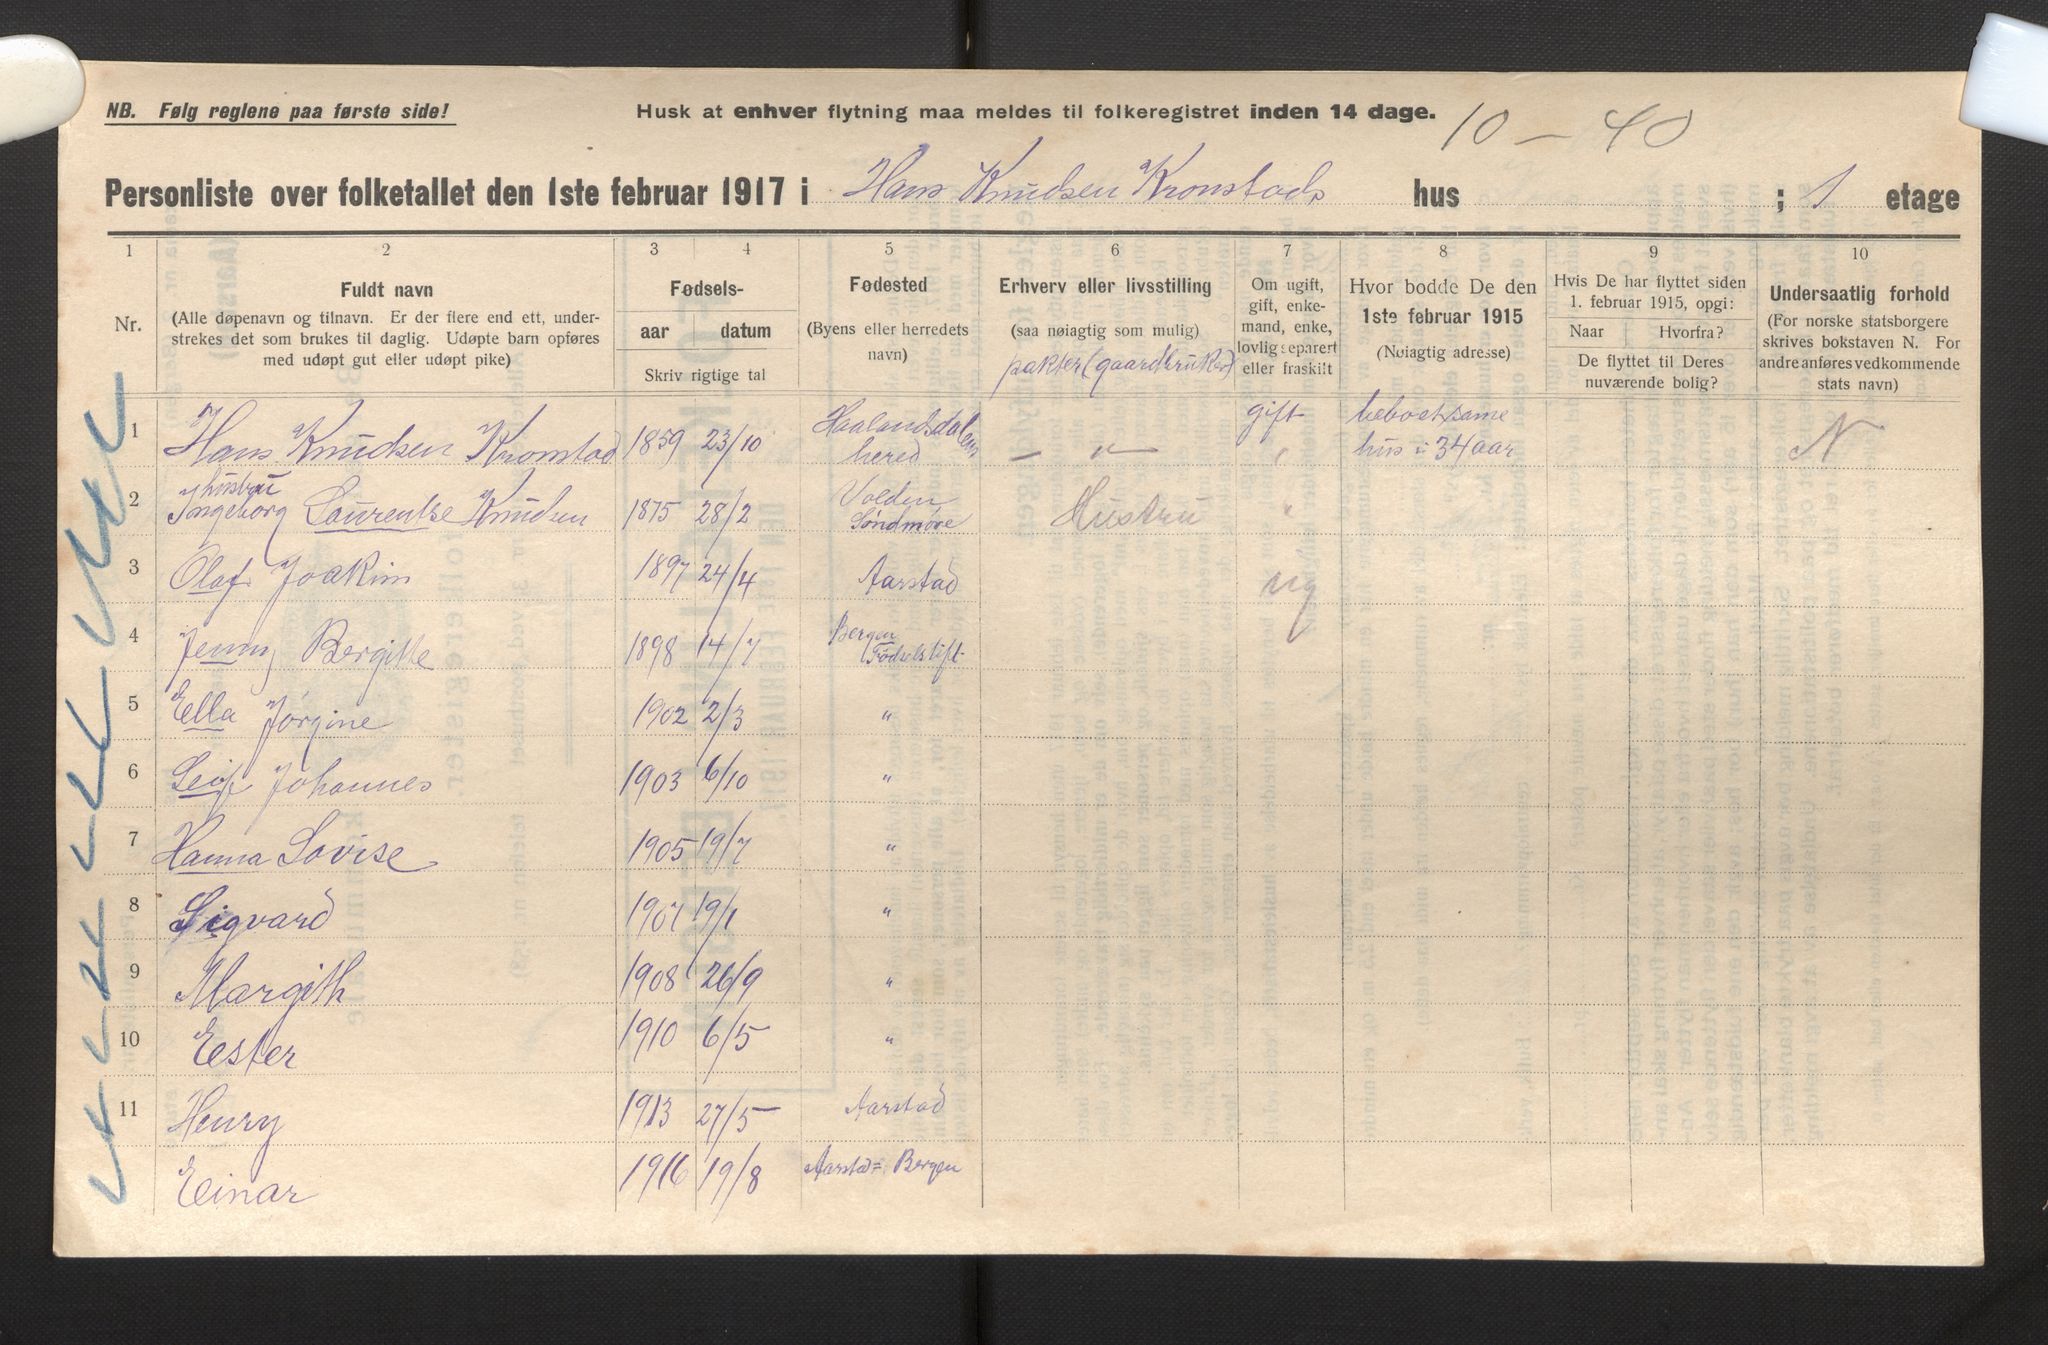 NB. Følg reglene paa første side!
Husk at enhver flytning maa meldes til folkeregistret inden 14 dage.
10 – 40
Personliste over folketallet den 1ste februar 1917 i Hans Knudsen Kronstads hus ; 1 etage
1 2 3 4 5 6 7 8 9 10
Nr.
Fuldt navn
(Alle døpenavn og tilnavn. Er der flere end ett, under-
strekes det som brukes til daglig. Udøpte barn opføres
med udøpt gut eller udøpt pike)
Fødsels-
aar datum
Skriv rigtige tal
Fødested
(Byens eller herredets
navn)
Erhverv eller livsstilling
(saa nøiagtig som mulig)
pakter (gaardbruker)
Om ugift,
gift, enke-
mand, enke,
lovlig separert
eller fraskilt
Hvor bodde De den
1ste februar 1915
(Nøiagtig adresse)
Hvis De har flyttet siden
1. februar 1915, opgi:
Naar Hvorfra?
De flyttet til Deres
nuværende bolig?
Undersaatlig forhold
(For norske statsborgere
skrives bokstaven N. For
andre anføres vedkommende
stats navn)
1 Hans Knudsen Kronstad 1859 23/10 Haalandsdalens
hered – " – gift beboet samme
hus i 34 aar N
hustru
2 Ingeborg Laurentse Knudsen 1875 28/2 Volden
Søndmøre Hustru "
3 Olaf Joakim 1897 24/4 Aarstad ug
4 Jenny Bergitte 1898 14/7 Bergen
Fødselstift.
5 Ella Jørgine 1902 2/3 "
6 Leif Johannes 1903 6/10 "
7 Hanna Lovise 1905 19/7 "
8 Sigvard 1907 19/1 "
9 Margith 1908 26/9 "
10 Ester 1910 6/5 "
11 Henry 1913 27/5 Aarstad
Einar 1916 19/8 Aarstad = Bergen